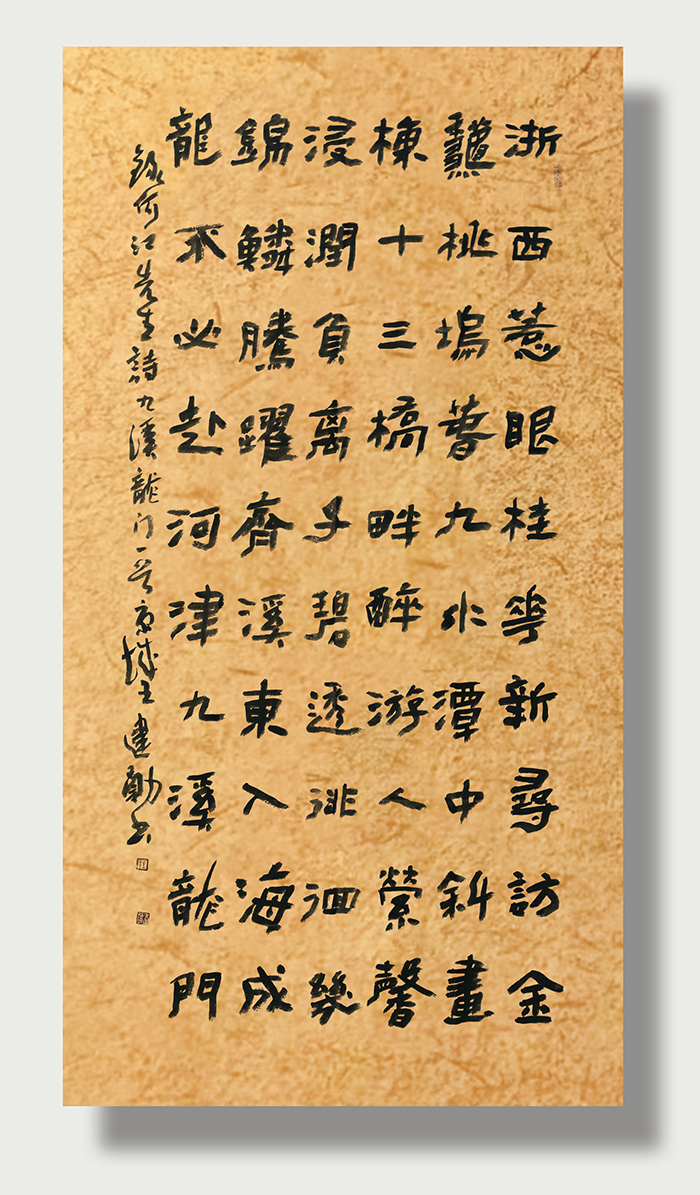 浙西惹眼桂花新尋訪金
桃塢暮九水潭中斜畫
棟十三橋畔醉游人縈馨
浸潤負离子碧透徘徊幾
錦鱗騰躍齊溪東入海成
龍不必赴河津九溪龍門
錄何江先生詩九溪龍门一首京城王建勛书